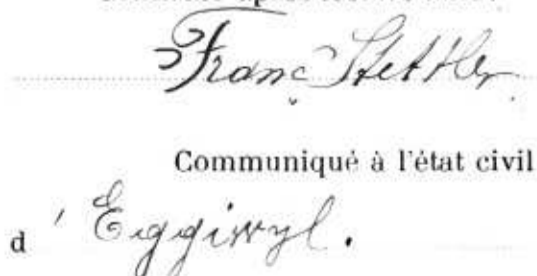 Franc Stettler
Communiqué à l'état civil
d'Eggiwyl.